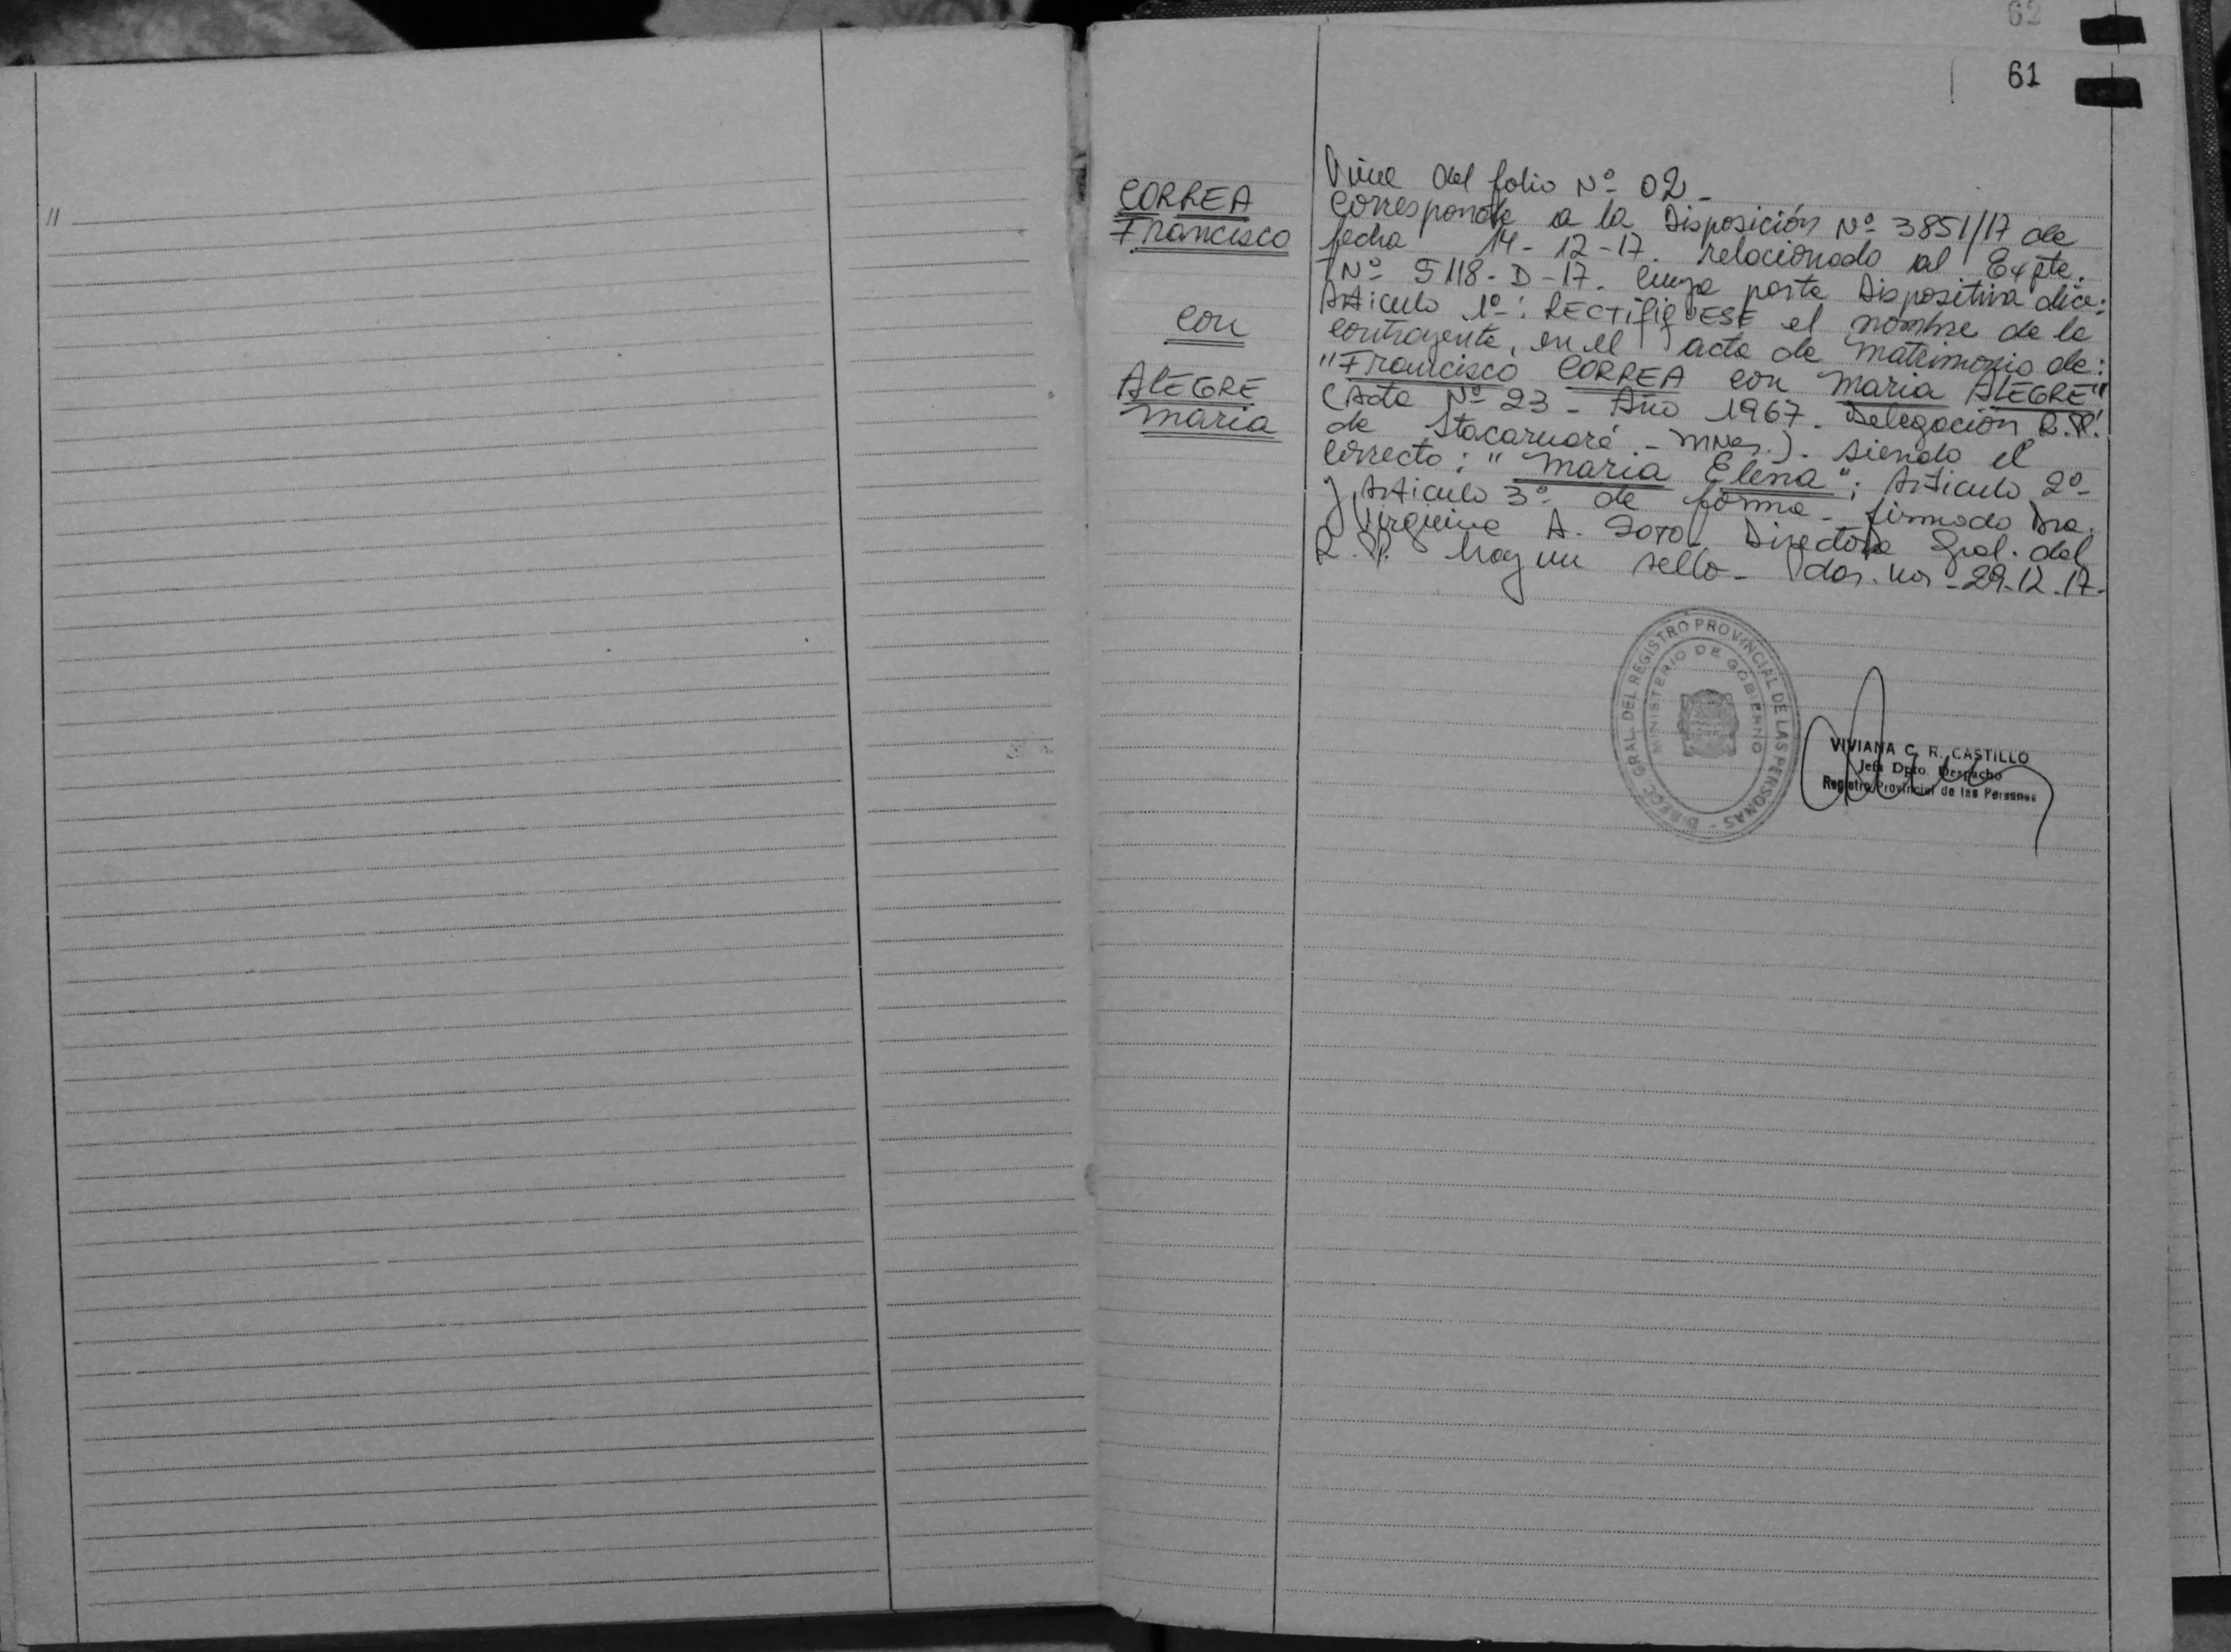 "
62
61
CORREA
Francisco
con
ALEGRE
Maria
Viene del folio Nº 02-
Corresponde a la Disposición Nº 3851/17 de
fecha 14-12-17. relacionado al Expte.
Nº 5118-D-17. cuya parte Dispositiva dice:
Articulo 1º: RECTIFIQUESE el nombre de la
contrayente, en el acta de matrimonio de:
"Francisco CORREA con Maria ALEGRE"
(Acta Nº 23 - Año 1967. Delegación R.P.
de Itacaruaré - Mnes.). siendo el
correcto: "Maria Elena"; Articulo 2º-
y Articulo 3º- de forma - firmado Dra.
A. Directora Gral. del
R.P. hay un sello- Pdas. Mns - 29-12-17.
DIRECC. GRAL. DEL REGISTRO PROVINCIAL DE LAS PERSONAS -
MINISTERIO DE GOBIERNO
VIVIANA C. R. CASTILLO
Jefa Dpto. Despacho
Registro Provincial de las Personas